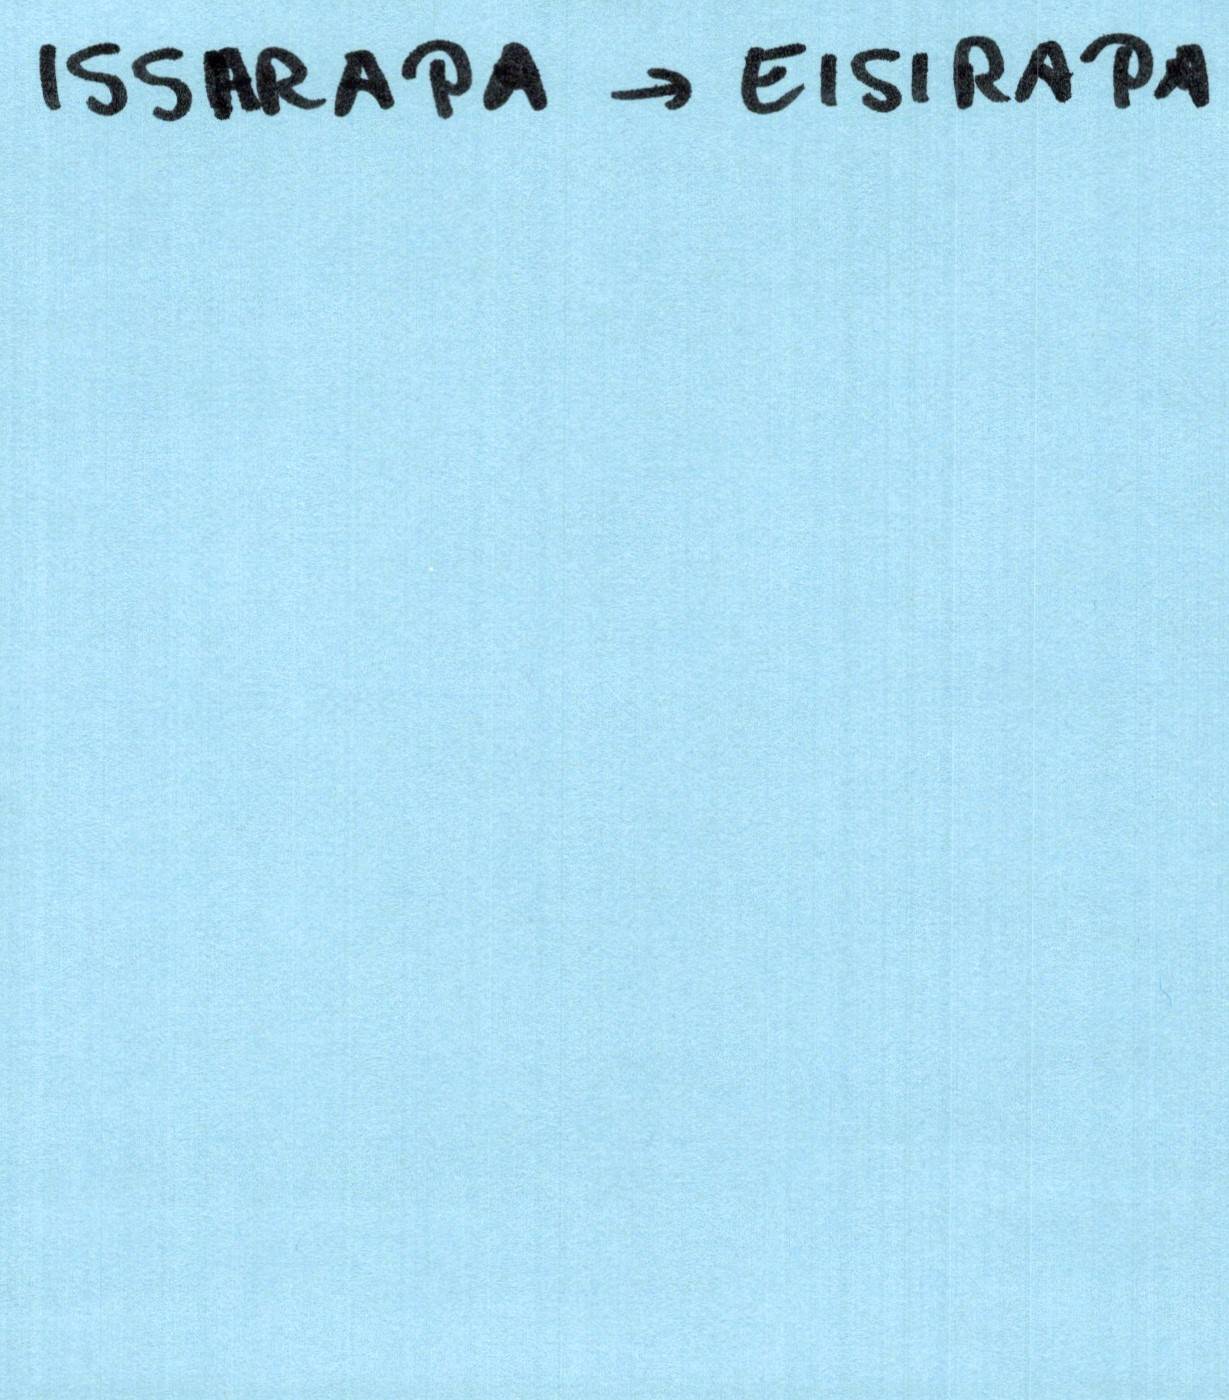 ISSARAPA → EISIRAPA